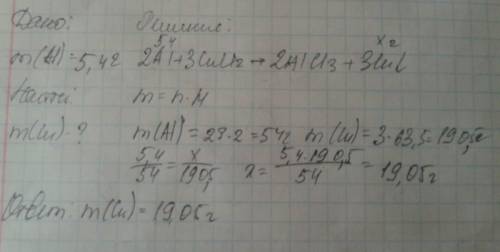 Дано: Решение:
5,4 x г
m(Al)=5,4г 2Al+3CuCl2→2AlCl3+3Cu
Найти: m=n·M
m(Cu)-? m(Al)=27·2=54г m(Cu)=3·63,5=190,5г
5,4/54=x/190,5 x=5,4·190,5/54=19,05г
Ответ: m(Cu)=19,05г